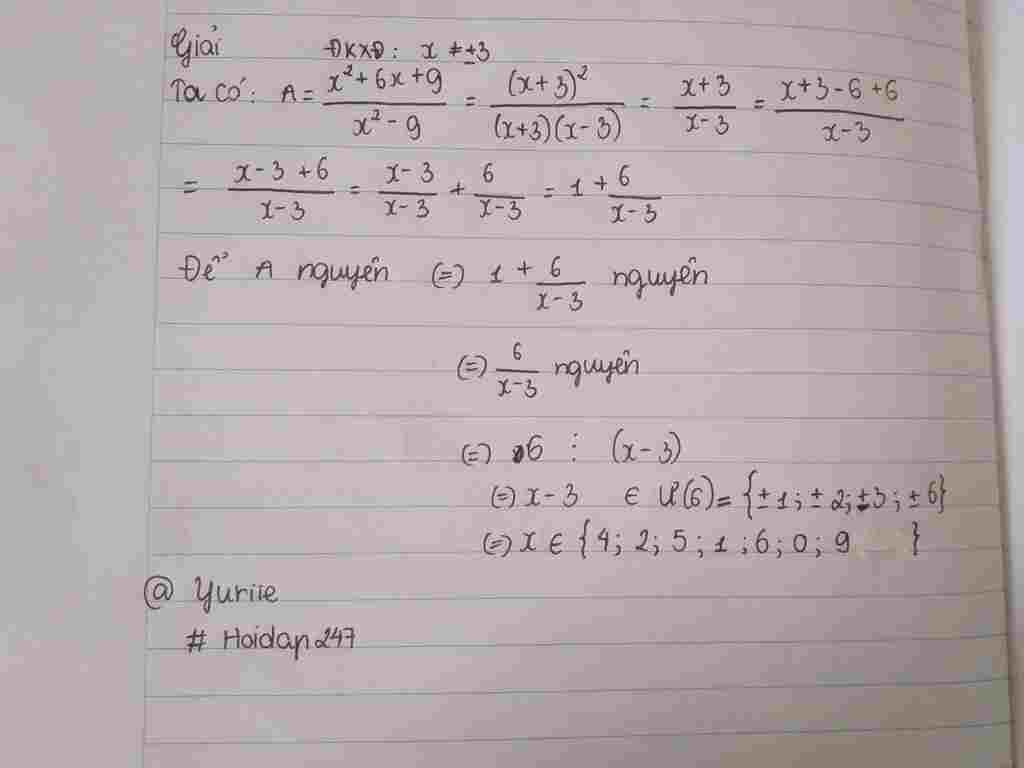 Giải ĐKXĐ: x ≠ ±3
Ta có: A = (x² + 6x + 9)/(x² - 9) = (x + 3)²/((x+3)(x-3)) = (x+3)/(x-3) = (x+3-6+6)/(x-3)
= (x-3+6)/(x-3) = (x-3)/(x-3) + 6/(x-3) = 1 + 6/(x-3)
Để A nguyên (=) 1 + 6/(x-3) nguyên
(=) 6/(x-3) nguyên
(=) 6 ⋮ (x-3)
(=) x-3 ∈ Ư(6) = {±1; ±2; ±3; ±6}
(=) x ∈ {4; 2; 5; 1; 6; 0; 9 }
@ Yuriie
# Hoidap247